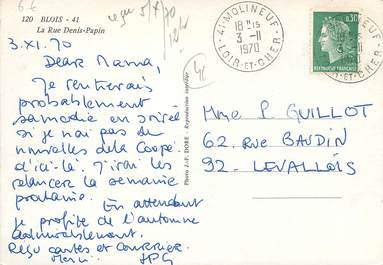 120 BLOIS - 41
La Rue Denis-Papin
3.XI.70
Dear Mama,
Je rentrerais
probablement
samedie en soirée
si je n'ai pas de
nouvelles de la Coopé
d'ici-là. J'irai les
relancer la semaine
prochaine. En attendant
je profite de l'automne
admirablement.
Reçu cartes et courrier.
Merci. JPG
Photo J.-F. DORE - Reproduction interdite
reçu 5/X/70
41 MOLINEUF
18H15
3-11
1970
LOIR-ET-CHER
0,30
REPUBLIQUE FRANÇAISE
Mme P. GUILLOT
62, RUE BAUDIN
92 - LEVALLOIS